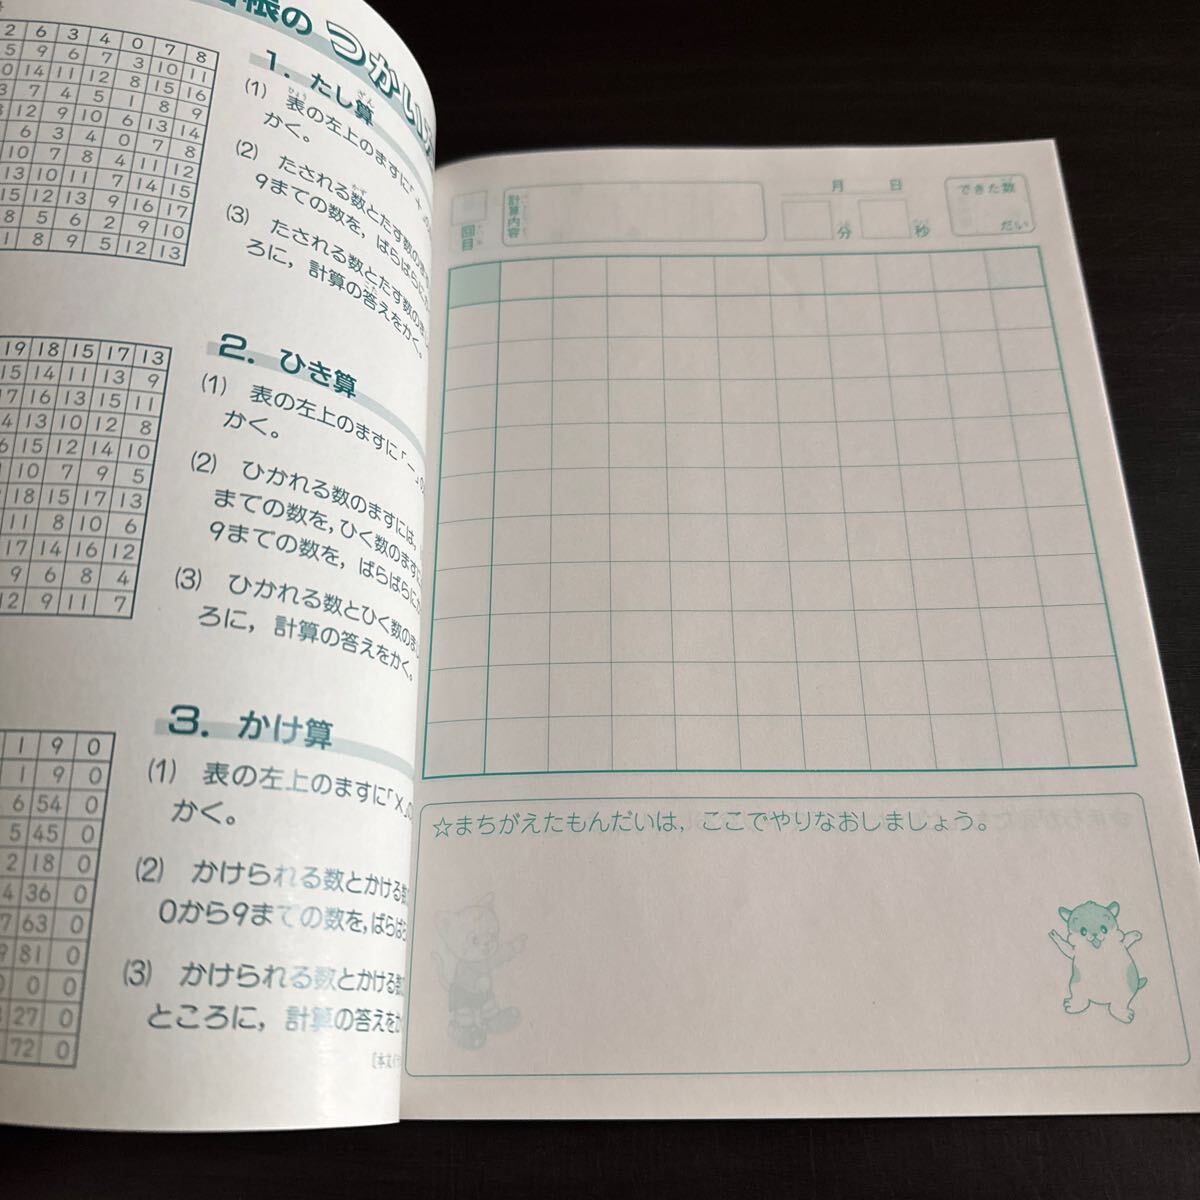 帳の つかい
1. たし算
(1) 表の左上のますに「+」の
かく。
(2) たされる数とたす数の
9までの数を，ばらばらに
(3) たされる数とたす数の
ろに，計算の答えをかく。
2. ひき算
(1) 表の左上のますに「－」の
かく。
(2) ひかれる数のますには，
までの数を，ひく数のますに
9までの数を，ばらばらに
(3) ひかれる数とひく数の
ろに，計算の答えをかく。
3. かけ算
(1) 表の左上のますに「×」の
かく。
(2) かけられる数とかける数
0から9までの数を，ばらばら
(3) かけられる数とかける数
ところに，計算の答えをか
2 6 3 4 0 7 8
5 9 6 7 3 10 11
14 11 12 8 15 16
3 7 4 5 1 8 9
12 9 10 6 13 14
6 3 4 0 7 8
10 7 8 4 11 12
13 10 11 7 14 15
15 12 13 9 16 17
8 5 6 2 9 10
8 9 5 12 13
19 18 15 17 13
15 14 11 13 9
17 16 13 15 11
13 10 12 8
15 12 14 10
10 7 9 5
18 15 17 13
11 8 10 6
17 14 16 12
9 6 8 4
12 9 11 7
1 9 0
1 9 0
6 54 0
5 45 0
2 18 0
4 36 0
7 63 0
9 81 0
0 0 0
27 0
72 0
回目
計算内容
月 日
分 秒
できた数
だい
☆まちがえたもんだいは，ここでやりなおしましょう。